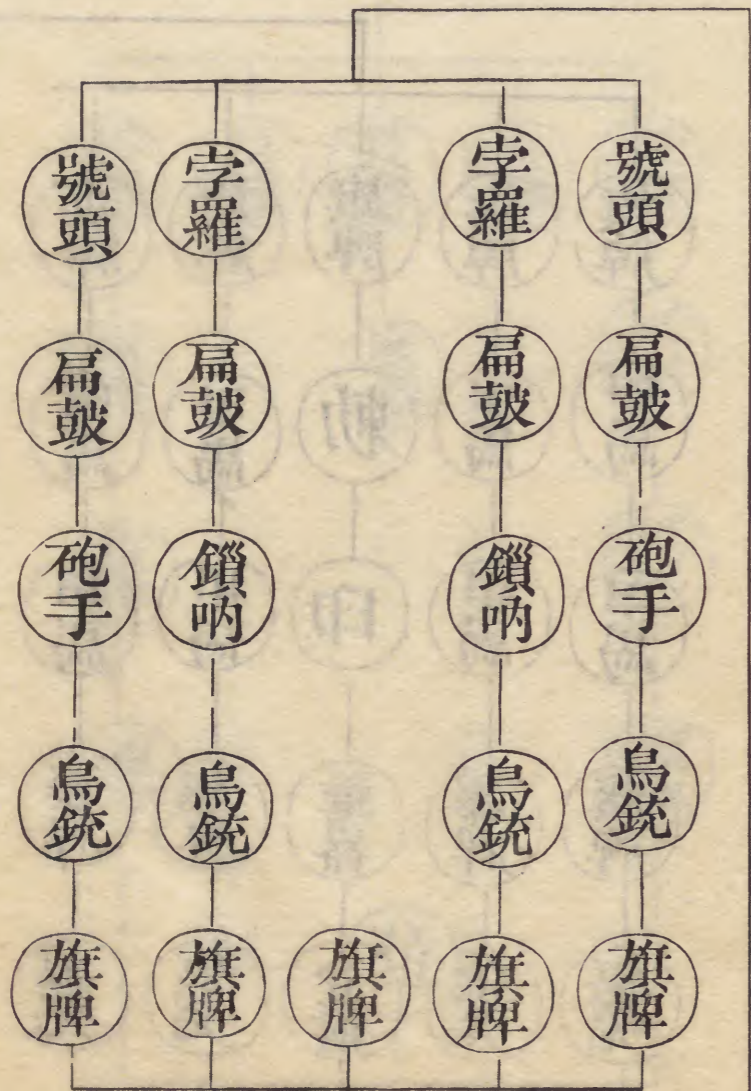 號頭
扁皷
砲手
鳥銃
旗牌
孛羅
扁皷
鎻吶
鳥銃
旗牌
旗牌
孛羅
扁皷
鎻吶
鳥銃
旗牌
號頭
扁皷
砲手
鳥銃
旗牌